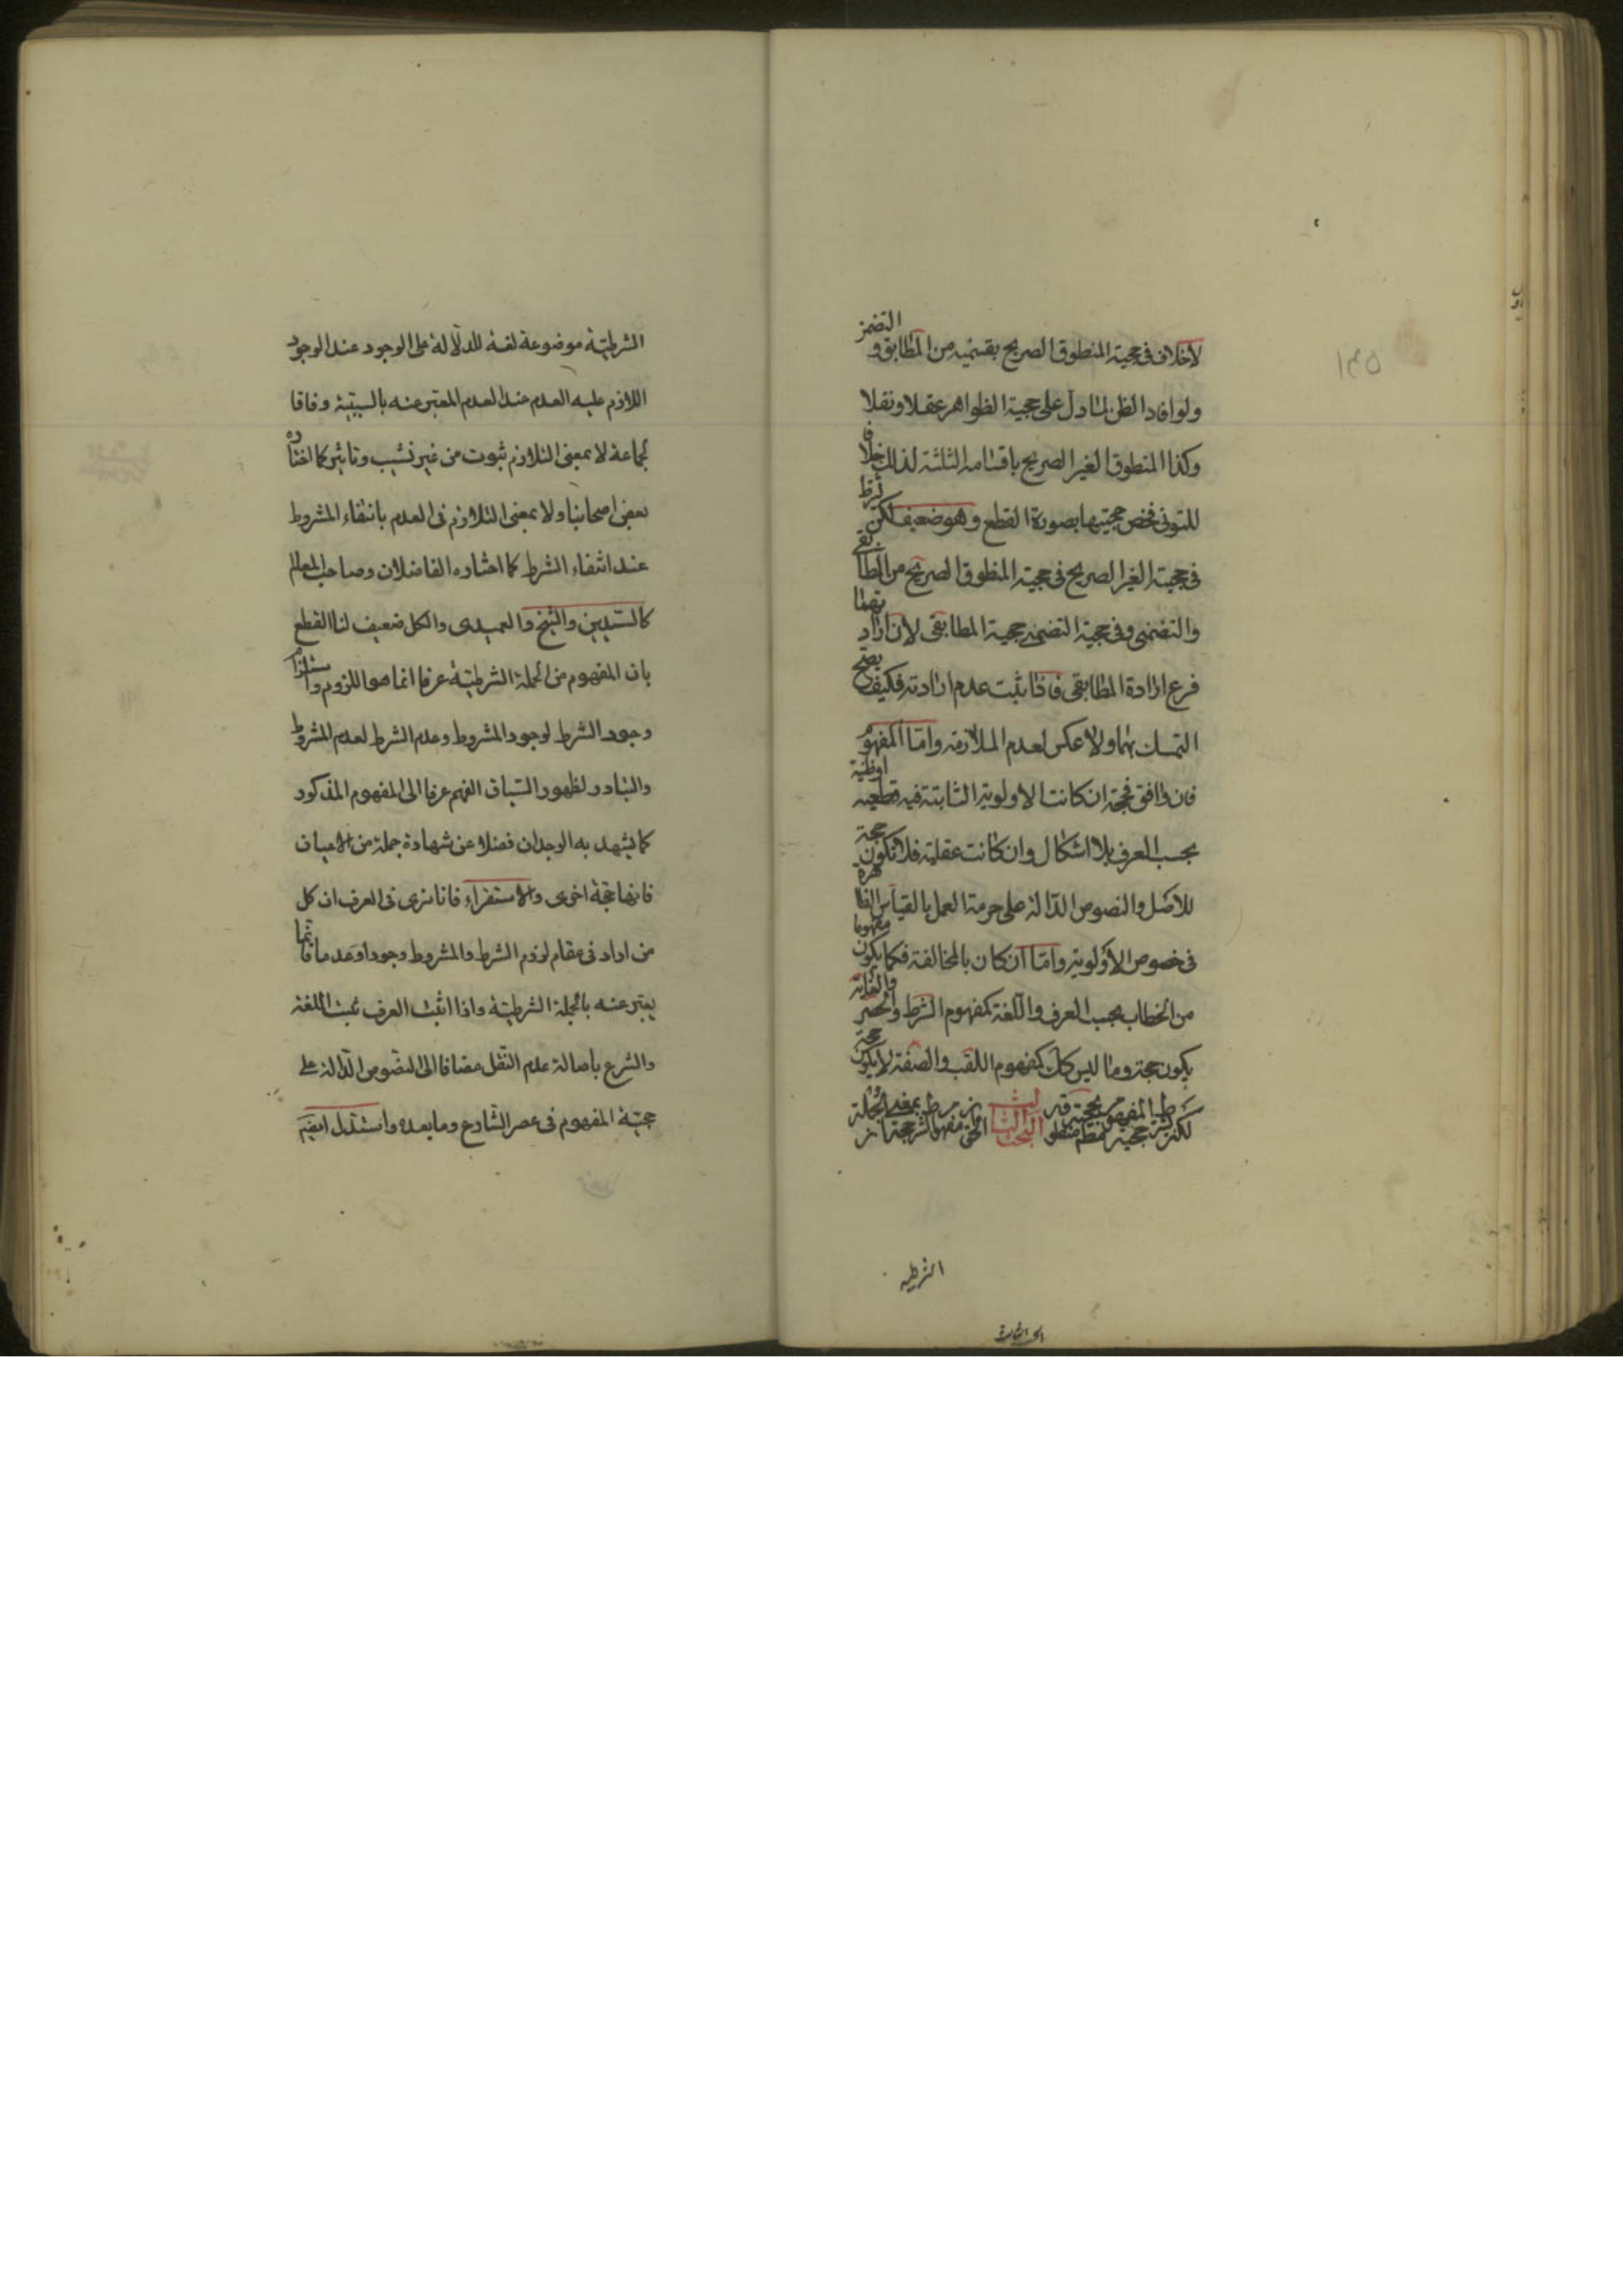 لاخلاف فى حجية المنطوق الصريح بقسميه من المطابق و التضمن
ولو افاد الظن لما دل على حجية الظواهر عقلا ونقلا
وكذا المنطوق الغير الصريح باقسامه الثلثة لذلك خلافا
للتونى فخص حجيتها بصورة القطع وهو ضعيف لكن شرط
فى حجية الغير الصريح فى حجية المنطوق الصريح من المطابقى
والتضمنى وفى حجية التضمنى حجية المطابقى لان ارادتهما
فرع ارادة المطابقى فاذا ثبت عدم ارادته فكيف يصح
التمسك بهما ولا عكس لعدم الملازمة واما المفهوم
فان وافق فحجة ان كانت الاولوية الثابتة فيه قطعيه او ظنية
بحسب العرف بلا اشكال وان كانت عقلية فلا تكون حجة
للاصل والنصوص الدالة على حرمة العمل بالقياس الظاهرة
فى خصوص الاولوية واما ان كان بالمخالفة فكما يكون مفهوما
من الخطاب بحسب العرف واللغة كمفهوم الشرط والحصر والغاية
يكون حجة وما ليس كك كمفهوم اللقب والصفة لا يكون حجة
لكن شرط حجية المفهوم حجية منطوقه البحث الثالث الحق مفهوم الشرط حجة بمعنى ان الجملة
الشرطيه
الشرطية موضوعة لغة للدلالة على الوجود عند الوجود
اللازم عليه العدم عند العدم المعتبر عنه بالسببية وفاقا
لجماعة لا بمعنى التلازم ثبوت من غير تسبب وتاثير كما اختاره
بعض اصحابنا ولا بمعنى التلازم فى العدم بانتفاء المشروط
عند انتفاء الشرط كما اختاره الفاضلان وصاحب المعالم
كالسيدين والشيخ والعميدى والكل ضعيف لنا القطع
بان المفهوم من الجملة الشرطية عرفا انما هو اللزوم واستلزام
وجود الشرط لوجود المشروط وعدم الشرط لعدم المشروط
والتبادر لظهور انسباق الفهم عرفا الى المفهوم المذكور
كما يشهد به الوجدان فضلا عن شهادة جملة من الاعيان
فانها حجة اخرى والاستقراء فانا نرى فى العرف ان كل
من اراد فى مقام لزوم الشرط والمشروط وجودا وعدما فانما
يعتبر عنه بالجملة الشرطية واذا اثبت العرف ثبت اللغة
والشرع باصالة عدم النقل مضافا الى النصوص الدالة على
حجية المفهوم فى عصر الشارع وما بعده واستدل ايضا